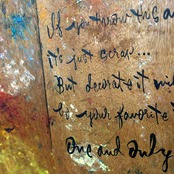 If you throw this a
it's just scrap...
But decorate it wi
your favorite
One and Only